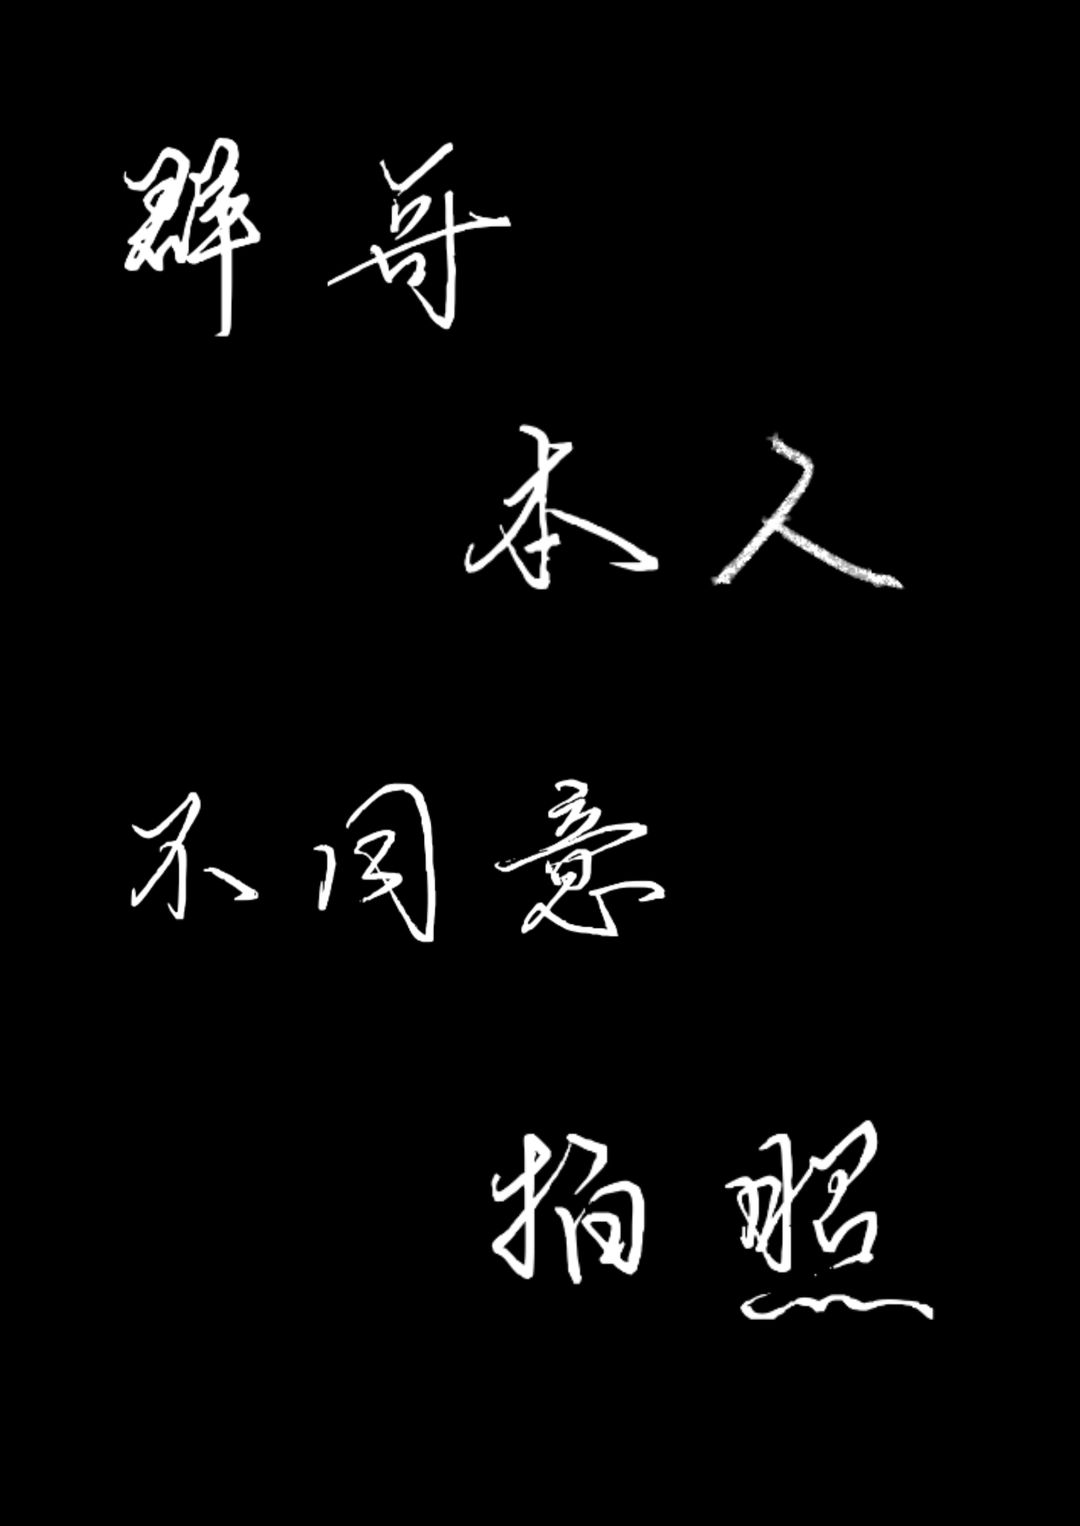 群哥
本人
不同意
拍照